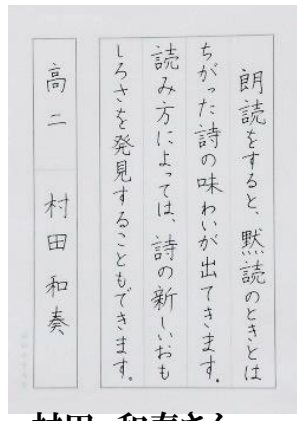 朗読をすると、黙読のときとは
ちがった詩の味わいが出てきます。
読み方によっては、詩の新しいおも
しろさを発見することもできます。
高二 村田和奏
村田 和奏さん